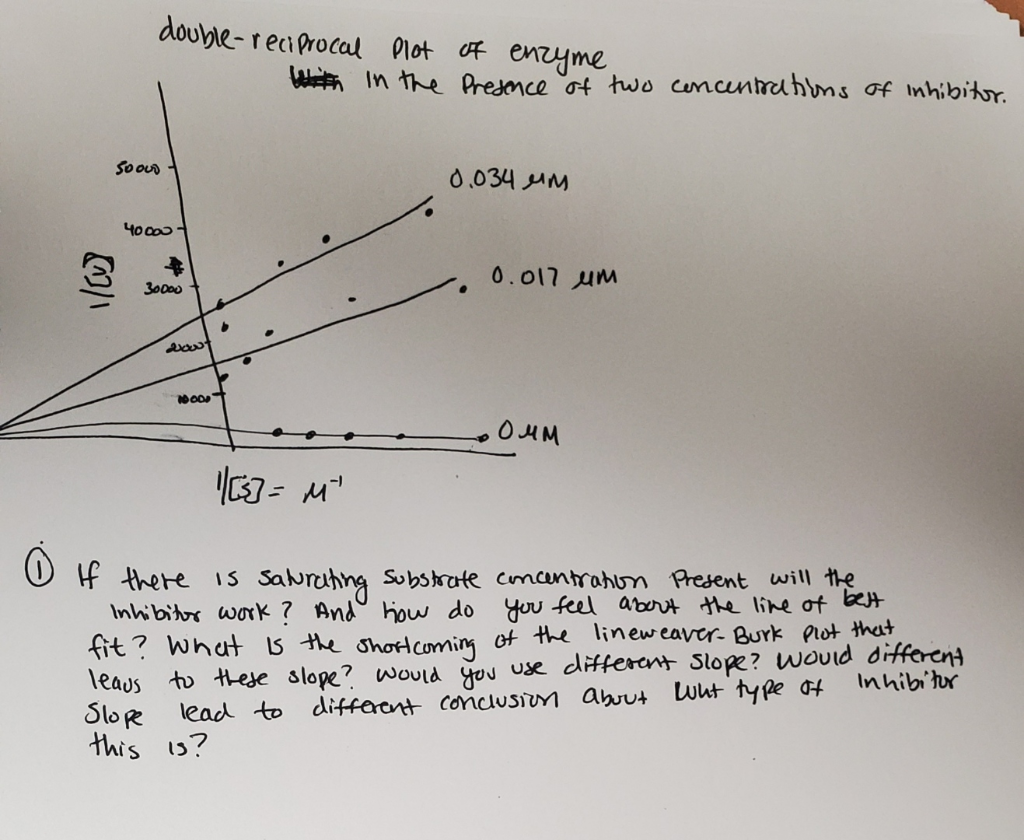 double-reciprocal Plot of enzyme
In the Presence of two concentrations of inhibitor.
50000
0.034 μM
40000
1/[v]
30000
0.017 μM
20000
10000
0 μM
1/[S] = M⁻¹
① If there is saturating substrate concentration Present will the
Inhibitor work? And how do you feel about the line of best
fit? What Is the shortcoming of the lineweaver-Burk plot that
leads to these slope? Would you use different slope? Would different
Slope lead to different conclusion about what type of Inhibitor
this is?